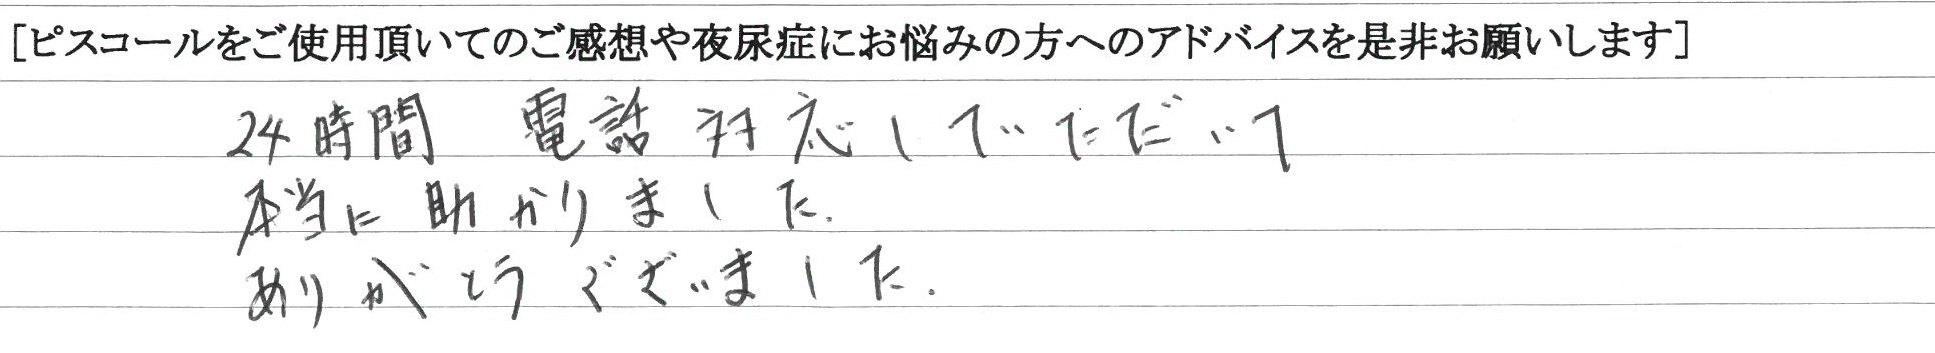 [ピスコールをご使用頂いてのご感想や夜尿症にお悩みの方へのアドバイスを是非お願いします]
24時間 電話対応していただいて
本当に助かりました.
ありがとうございました.